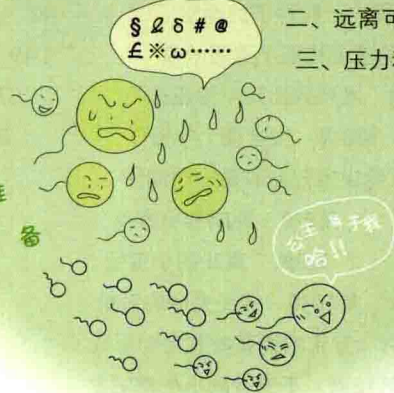 § & δ # @
£ ※ ω ……
二、远离
三、压力
备
公主 等于我
哈!!